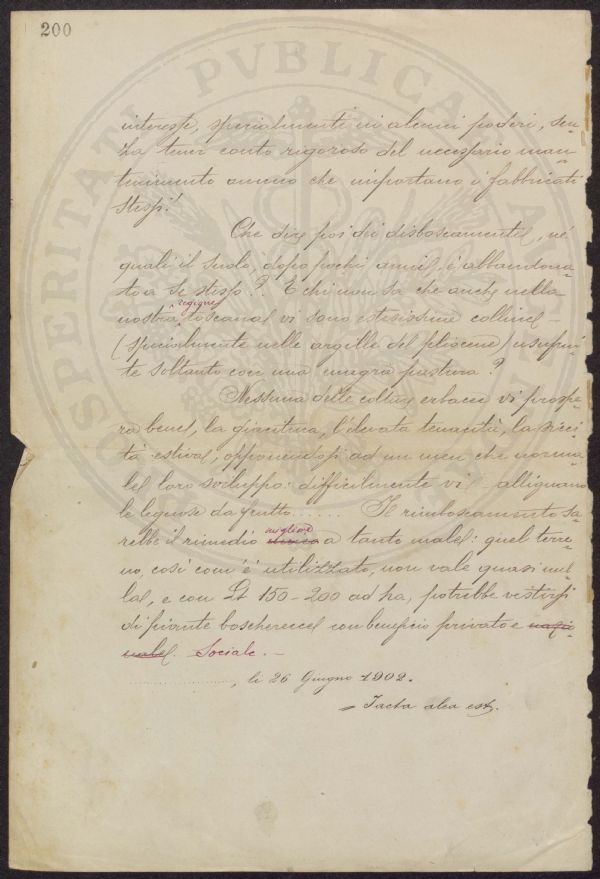 200
PROSPERITATI PVBLICAE AVGENDAE
interesse, specialmente in alcuni poderi, sen-
za tener conto rigoroso del necessario man-
tenimento annuo che importano i fabbricati
stessi!
Che dire poi dei disboscamenti, ne'
quali il suolo, dopo pochi anni, è abbandona-
to a se stesso? E chi non sa che anche nella
regione
nostra toscana vi sono estesissime colline -
(specialmente nelle argille del pliocene) usufrui-
te soltanto con una magra pastura?
Nessuna delle colture erbacee vi prospe-
ra bene, la giacitura, l'elevata tenacità, la sicci-
tà estiva, opponendosi ad un men che norma-
le loro sviluppo: difficilmente vi allignano
le legnose da frutto...... Il rimboscamento sa-
migliore
rebbe il rimedio unico a tanto male: quel terre-
no, così com'è utilizzato, non vale quasi nul-
la, e con Lt 150-200 ad ha, potrebbe vestirsi
di piante boscherecce con beneficio privato e nazio-
nale. Sociale. -
, li 26 Giugno 1902.
= Jacta alea est.